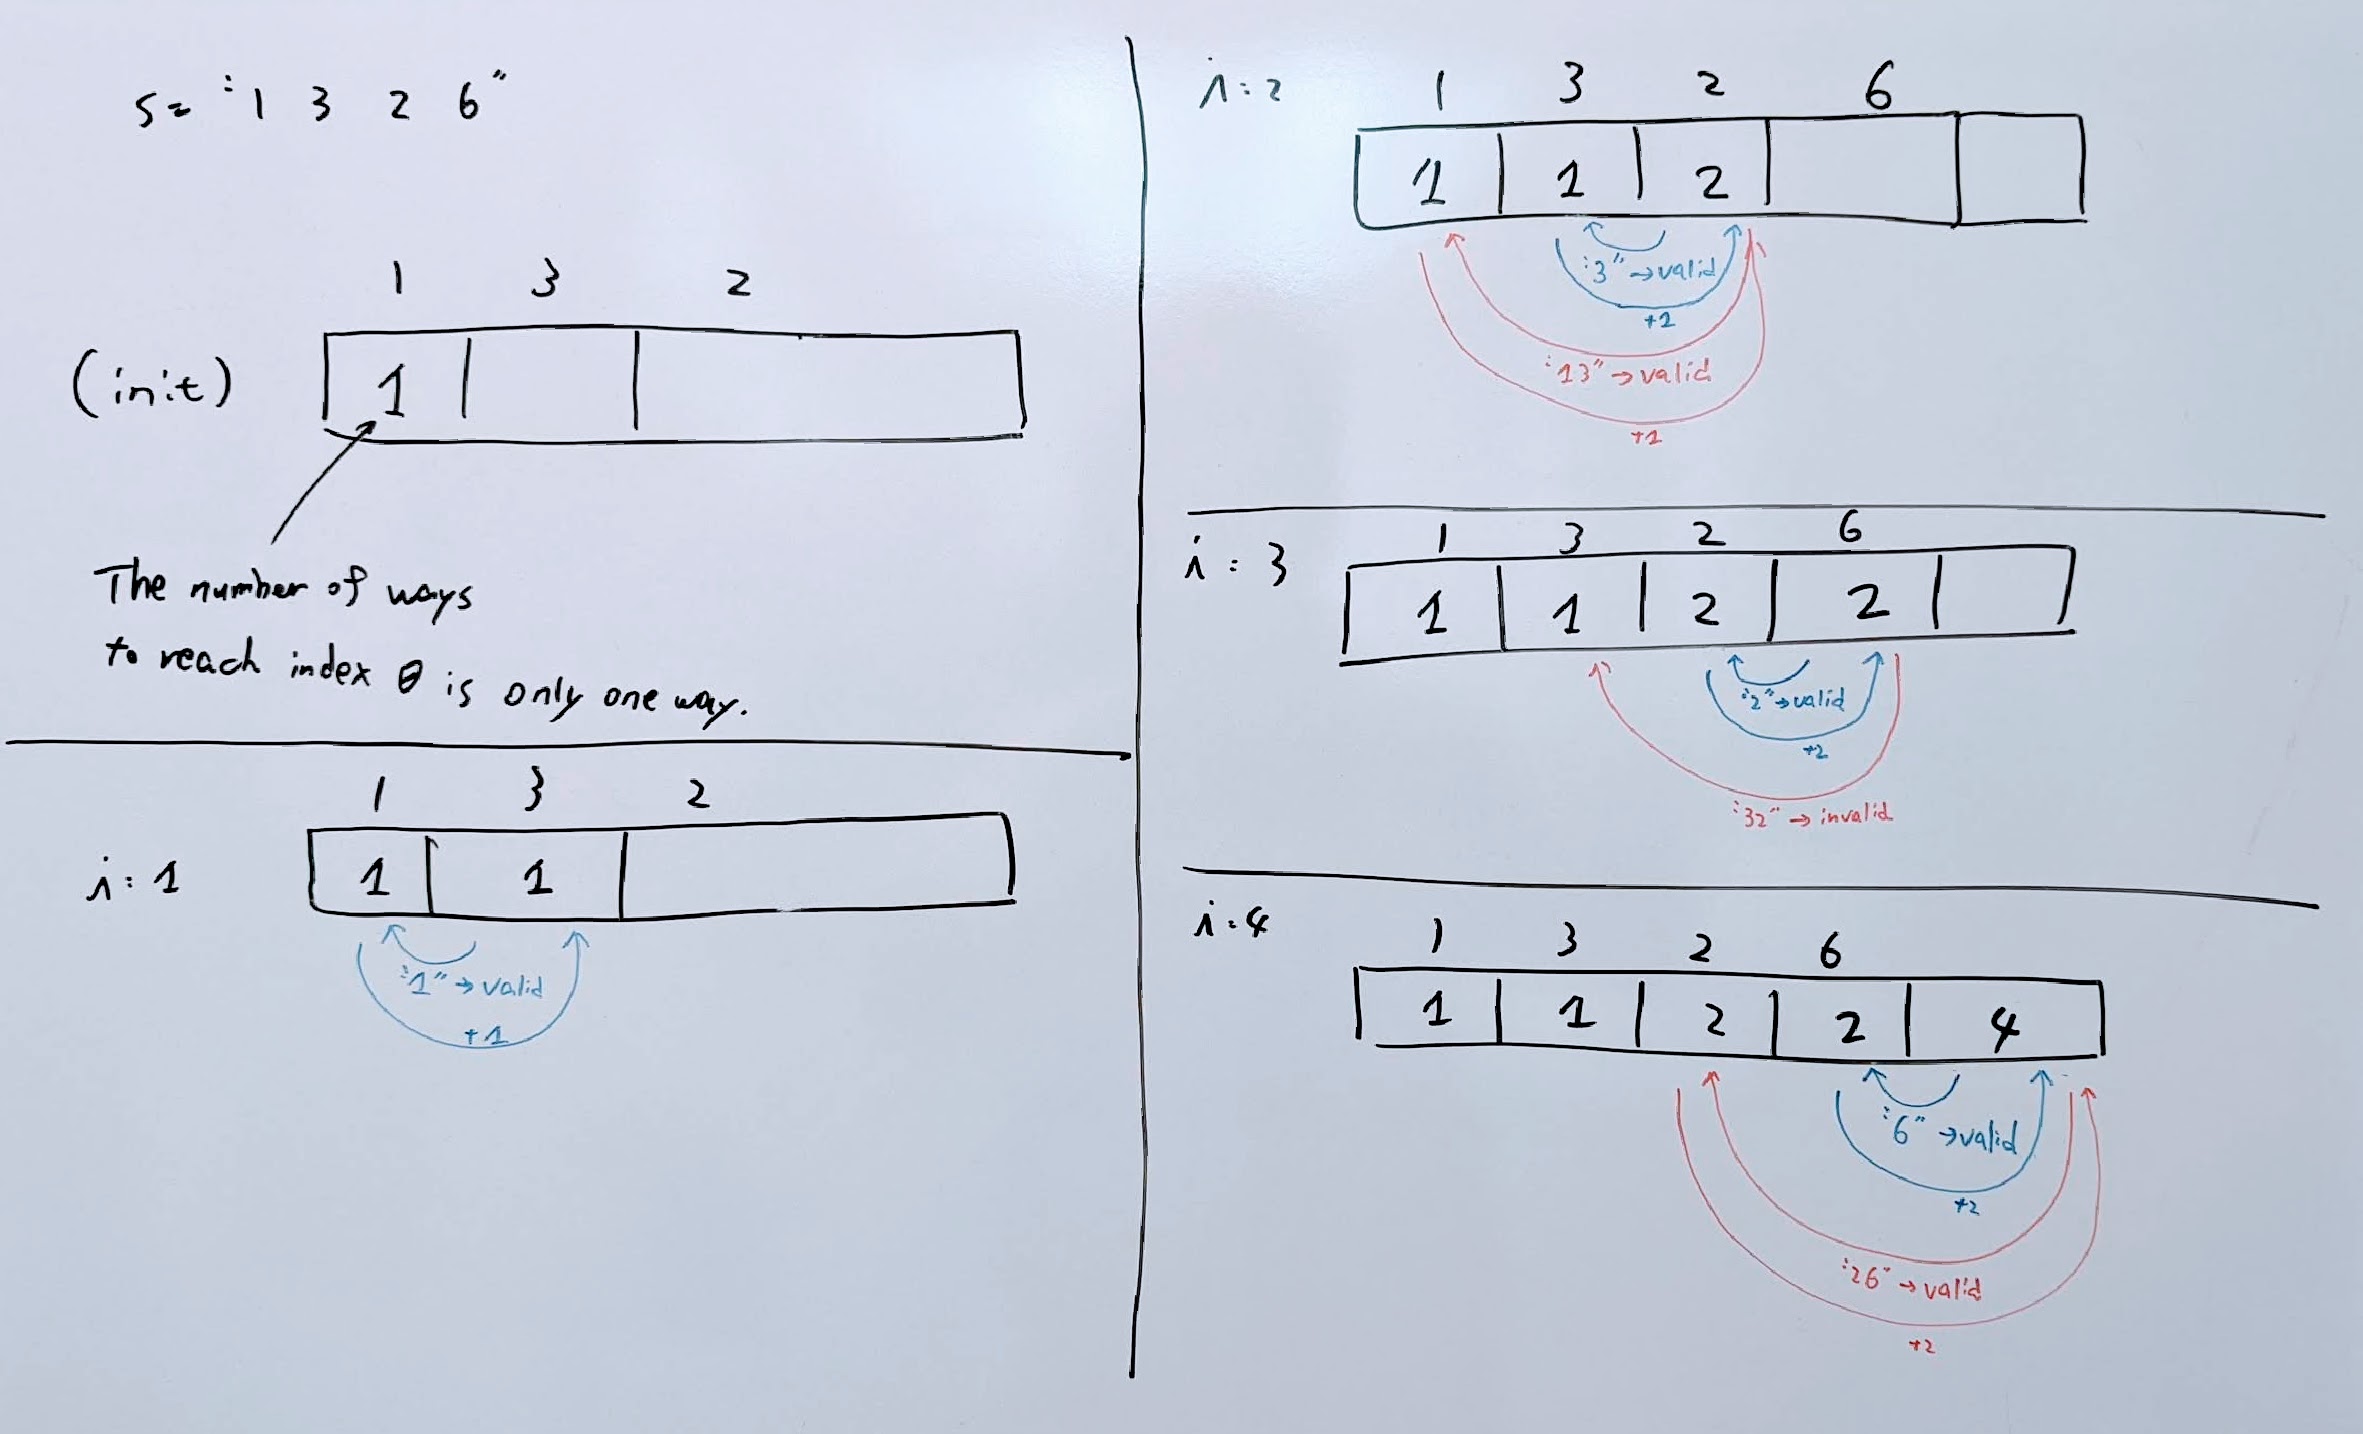 s = "1 3 2 6"
1 3 2
(init) 1
The number of ways
to reach index 0 is only one way.
1 3 2
i: 1 1 1
"1" → valid
+1
i: 2 1 3 2 6
1 1 2
"3" → valid
+1
"13" → valid
+1
1 3 2 6
i: 3 1 1 2 2
"2" → valid
+2
"32" → invalid
i: 4
1 3 2 6
1 1 2 2 4
"6" → valid
+2
"26" → valid
+2